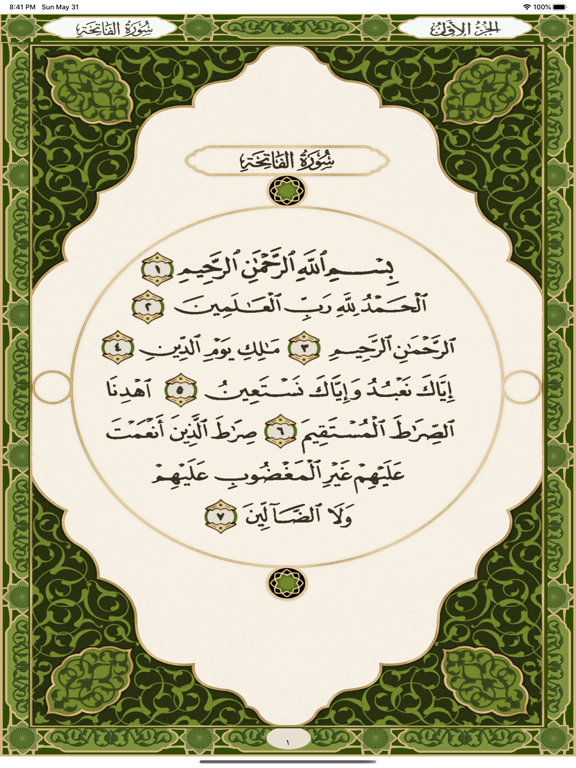 8:41 PM Sun May 31 100%
سُورَةُ الفَاتِحَةِ
الجُزْءُ الأَوَّلُ
سُورَةُ الفَاتِحَةِ
بِسْمِ ٱللَّهِ ٱلرَّحْمَٰنِ ٱلرَّحِيمِ ١
ٱلْحَمْدُ لِلَّهِ رَبِّ ٱلْعَٰلَمِينَ ٢
ٱلرَّحْمَٰنِ ٱلرَّحِيمِ ٣ مَٰلِكِ يَوْمِ ٱلدِّينِ ٤
إِيَّاكَ نَعْبُدُ وَإِيَّاكَ نَسْتَعِينُ ٥ ٱهْدِنَا
ٱلصِّرَٰطَ ٱلْمُسْتَقِيمَ ٦ صِرَٰطَ ٱلَّذِينَ أَنْعَمْتَ
عَلَيْهِمْ غَيْرِ ٱلْمَغْضُوبِ عَلَيْهِمْ
وَلَا ٱلضَّآلِّينَ ٧
١